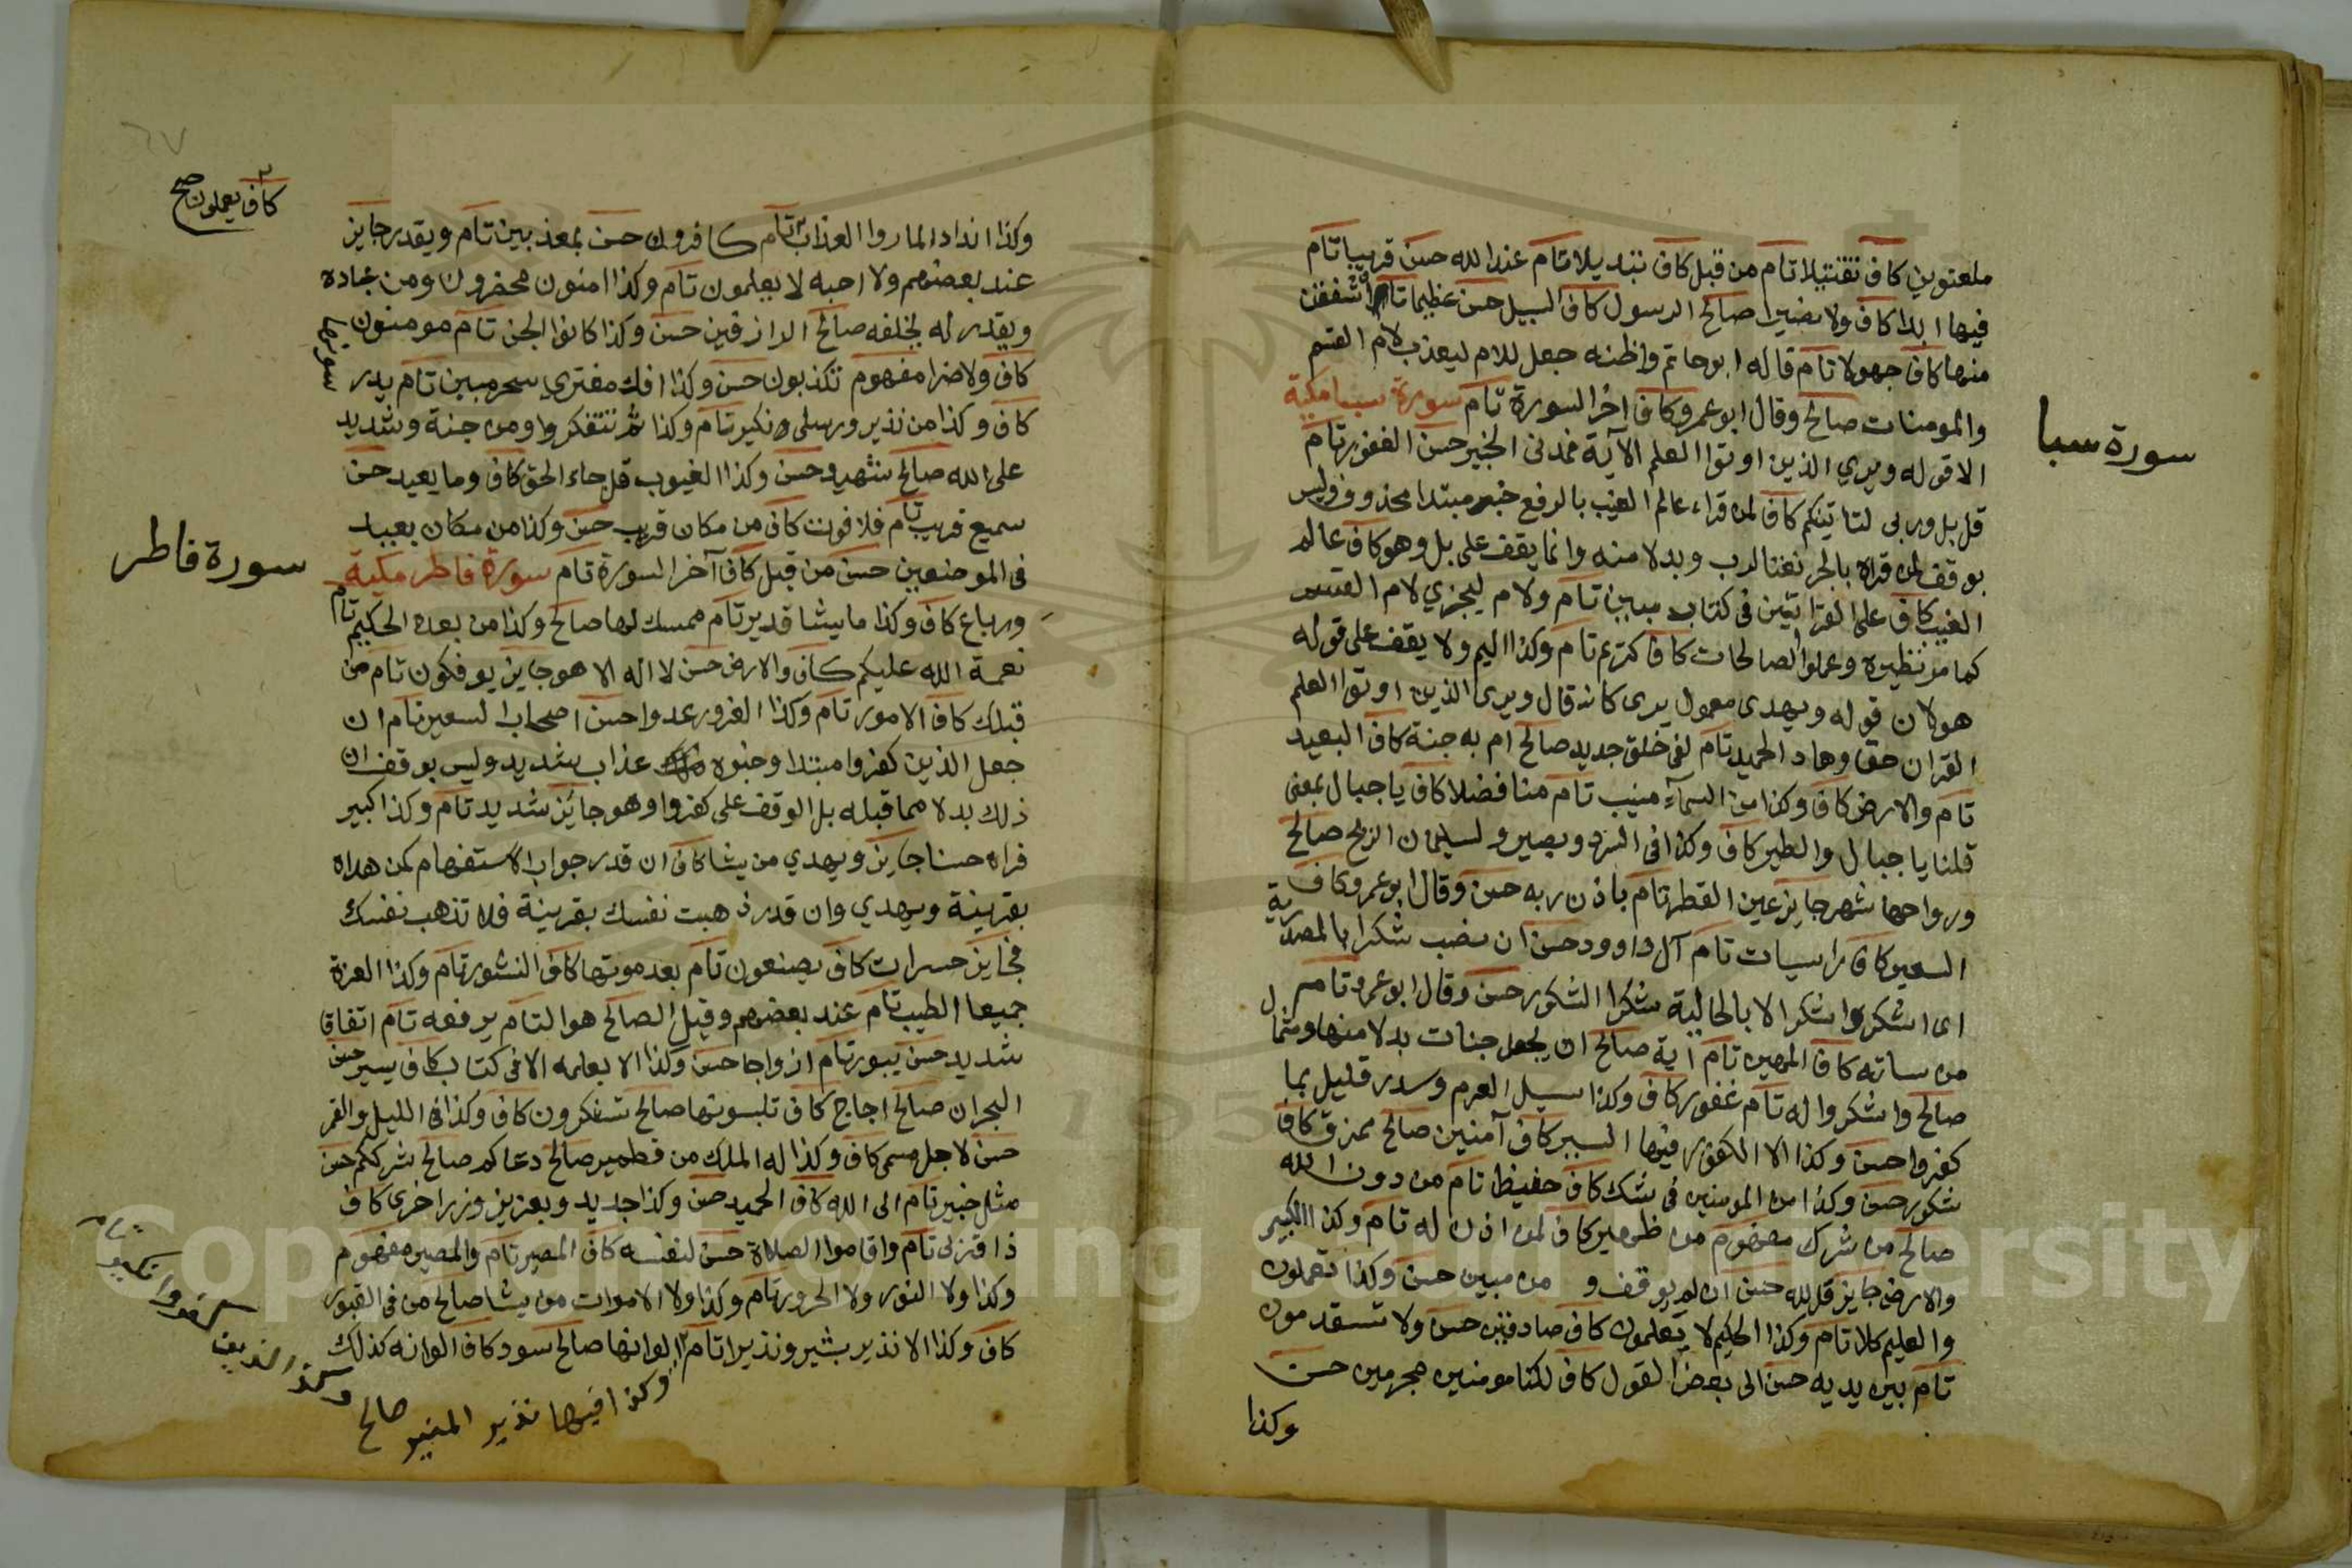 ملعونين كاف تقتيلا تام من قبل كاف تبديلا تام عند الله حسن قريبا تام
فيها ابدا كاف ولا نصيرا صالح الرسول كاف السبيل حسن عظيما تام واشفقن
منها كاف جهولا تام قاله ابو حاتم واظنه جعل للام ليعذب لام القسم
والمومنات صالح وقال ابو عمرو كاف اخر السورة تام سورة سبا مكية
الا قوله ويري الذين اوتوا العلم الآية فمدنى الخبير حسن الغفور تام
قل بل وربى لتاتينكم كاف لمن قراء عالم الغيب بالرفع خبر مبتدا محذوف وليس
بوقف لمن قراه بالجر نعتا لرب وبدلا منه وانما يقف على بل وهو كاف عالم
الغيب كاف على القراتين فى كتاب مبين تام ولام ليجزي لام القسم
كما مر نظيره وعملوا الصالحات كاف كريم تام وكذا اليم ولا يقف على قوله
هو لان قوله ويهدى معمول يرى كانه قال ويرى الذين اوتوا العلم
القران حقا وهاد الحميد تام لفى خلق جديد صالح ام به جنة كاف البعيد
تام والارض كاف وكذا من السمآء منيب تام منا فضلا كاف يا جبال بمعنى
قلنا يا جبال والطير كاف وكذا فى السرد وبصير ولسليمان الريح صالح
ورواحها شهر جايز عين القطر تام باذن ربه حسن وقال ابو عمرو كاف
السعير كاف راسيات تام آل داوود حسن ان نصب شكرا بالمصدرية
اى اشكروا شكرا لا بالحالية شكرا الشكور حسن وقال ابو عمرو تام
من ساته كاف المهين تام آية صالح ان لجعل جنات بدلا منها وشمال
صالح واشكروا له تام غفور كاف وكذا سيل العرم وسدر قليل بما
كفروا حسن وكذا الا الكفور فيها السير كاف آمنين صالح ممزق كاف
شكور حسن وكذا من المومنين فى شك كاف حفيظ تام من دون الله
صالح من شرك مفهوم من ظهير كاف لمن اذن له تام وكذا الكبير
والارض جايز قل لله حسن ان لم يوقف و من مبين حسن وكذا تعملون
والعليم كلا تام وكذا الحكيم لا يعلمون كاف صادقين حسن ولا تستقدمون
تام بين يديه حسن الى بعض القول كاف لكنا مومنين مجرمين حسن
وكذا
سورة سبا
وكذا اندادا لما روا العذاب تام كافرون حسن بمعذبين تام ويقدر جايز
عند بعضهم ولا احبه لا يعلمون تام وكذا امنون محضرون ومن عباده
ويقدر له يخلفه صالح الرازقين حسن وكذا كانوا الجن تام مومنون
كاف ولا ضرا مفهوم تكذبون حسن وكذا افك مفتري سحر مبين تام يدر سونها
كاف وكذا من نذير ورسلى ونكير تام وكذا ثم تتفكروا ومن جنة وشديد
على الله صالح شهيد حسن وكذا الغيوب قل جاء الحق كاف وما يعيد حسن
سميع قريب تام فلا فوت كاف من مكان قريب حسن وكذا من مكان بعيد
فى الموضعين حسن من قبل كاف آخر السورة تام سورة فاطر مكية
ورباع كاف وكذا ما يشا قدير تام ممسك لها صالح وكذا من بعده الحكيم تام
نعمة الله عليكم كاف والارض حسن لا اله الا هو جايز يوفكون تام من
قبلك كاف الامور تام وكذا الغرور عدوا حسن اصحاب السعير تام ان
جعل الذين كفروا مبتدا وخبره عذاب شديد وليس بوقف ان
ذلك بدلا مما قبله بل الوقف على كفروا وهو جائز شديد تام وكذا كبير
فراه حسنا جايز ويهدي من يشا كاف ان قدر جواب الاستفهام كمن هداه
بقرينة ويهدي وان قدر ذهبت نفسك بقرينة فلا تذهب نفسك
فجايز حسرات كاف يصنعون تام بعد موتها كاف النشور تام وكذا العزة
جميعا الطيب تام عند بعضهم وقيل الصالح هو التام يرفعه تام اتفاقا
شديد حسن يبور تام ازواجا حسن وكذا الا بعلمه الا فى كتاب كاف يسير حسن
البحران صالح اجاج كاف تلبسونها صالح تشكرون كاف وكذا فى الليل والقمر
حسن لاجل مسمى كاف وكذا له الملك من قطمير صالح دعاكم صالح شرككم حسن
مثل خبير تام الى الله كاف الحميد حسن وكذا جديد وبعزيز وزر اخرى كاف
ذا قربى تام واقاموا الصلاة حسن لنفسه كاف المصير تام والمصير مفهوم
وكذا ولا النور ولا الحرور تام وكذا ولا الاموات من يشا صالح من فى القبور
كاف وكذا الا نذير بشيرا ونذيرا تام الوانها صالح سود كاف الوانه كذلك
وكذا فيها نذير المنير صالح وكذا الذين كفروا نكير تام
كاف يعملون صح
سورة فاطر